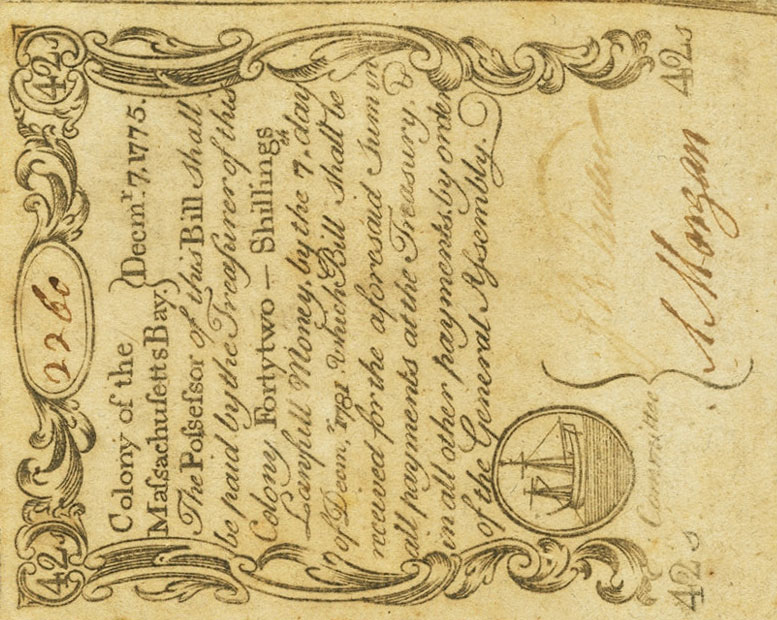 42s 2260 42s
Colony of the } Decmr. 7, 1775.
Maſsachuſetts Bay }
The Poſseſsor of this Bill shall
be paid by the Treaſurer of this
Colony Fortytwo – Shillings
Lawfull Money, by the 7th. day
of Decmr, 1781 . which Bill shall be
received for the aforesaid sum in
all payments at the Treasury, &
in all other payments, by order
of the General Aſsembly.
Committee }
Morgan
42s 42s